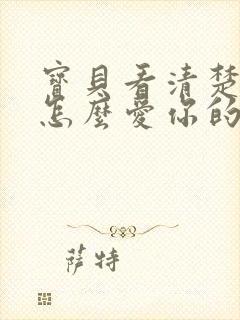 寶貝看清楚
怎麼愛你的
薩特